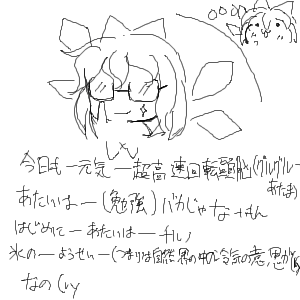 今日も一元気ー超高速回転頭脳(グルグルー
あたま)
あたいはー(勉強)バカじゃなーいもん
はじめてーあたいはーチルノ
氷のーようせいー(つまりは自然界の中の冷気の意思が
なのしっ